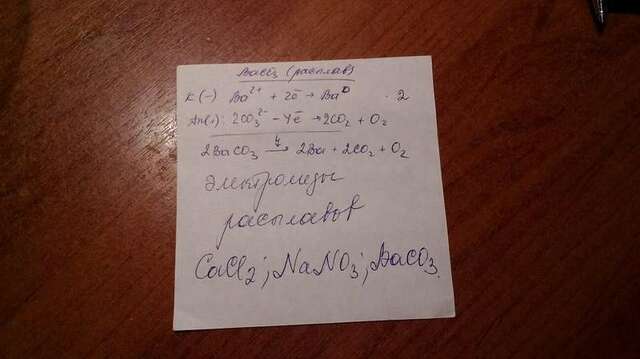 BaCO₃ (расплав)
K(-) Ba²⁺ + 2ē → Ba⁰ · 2
An(+): 2CO₃²⁻ - 4ē → 2CO₂ + O₂
2BaCO₃ → 2Ba + 2CO₂ + O₂
электролизы
расплавов
CaCl₂; NaNO₃; BaCO₃.